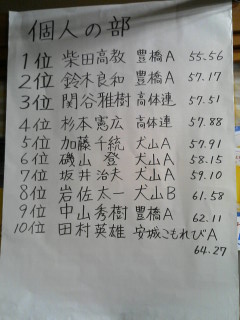 個人の部
1位 柴田高教 豊橋A 55.56
2位 鈴木良和 豊橋A 57.17
3位 関谷雅樹 高体連 57.51
4位 杉本憲広 高体連 57.88
5位 加藤千統 犬山A 57.91
6位 磯山 登 犬山A 58.15
7位 坂井治夫 犬山A 59.10
8位 岩佐太一 犬山B 61.58
9位 中山秀樹 豊橋A 62.11
10位 田村英雄 安城こもれびA
64.27